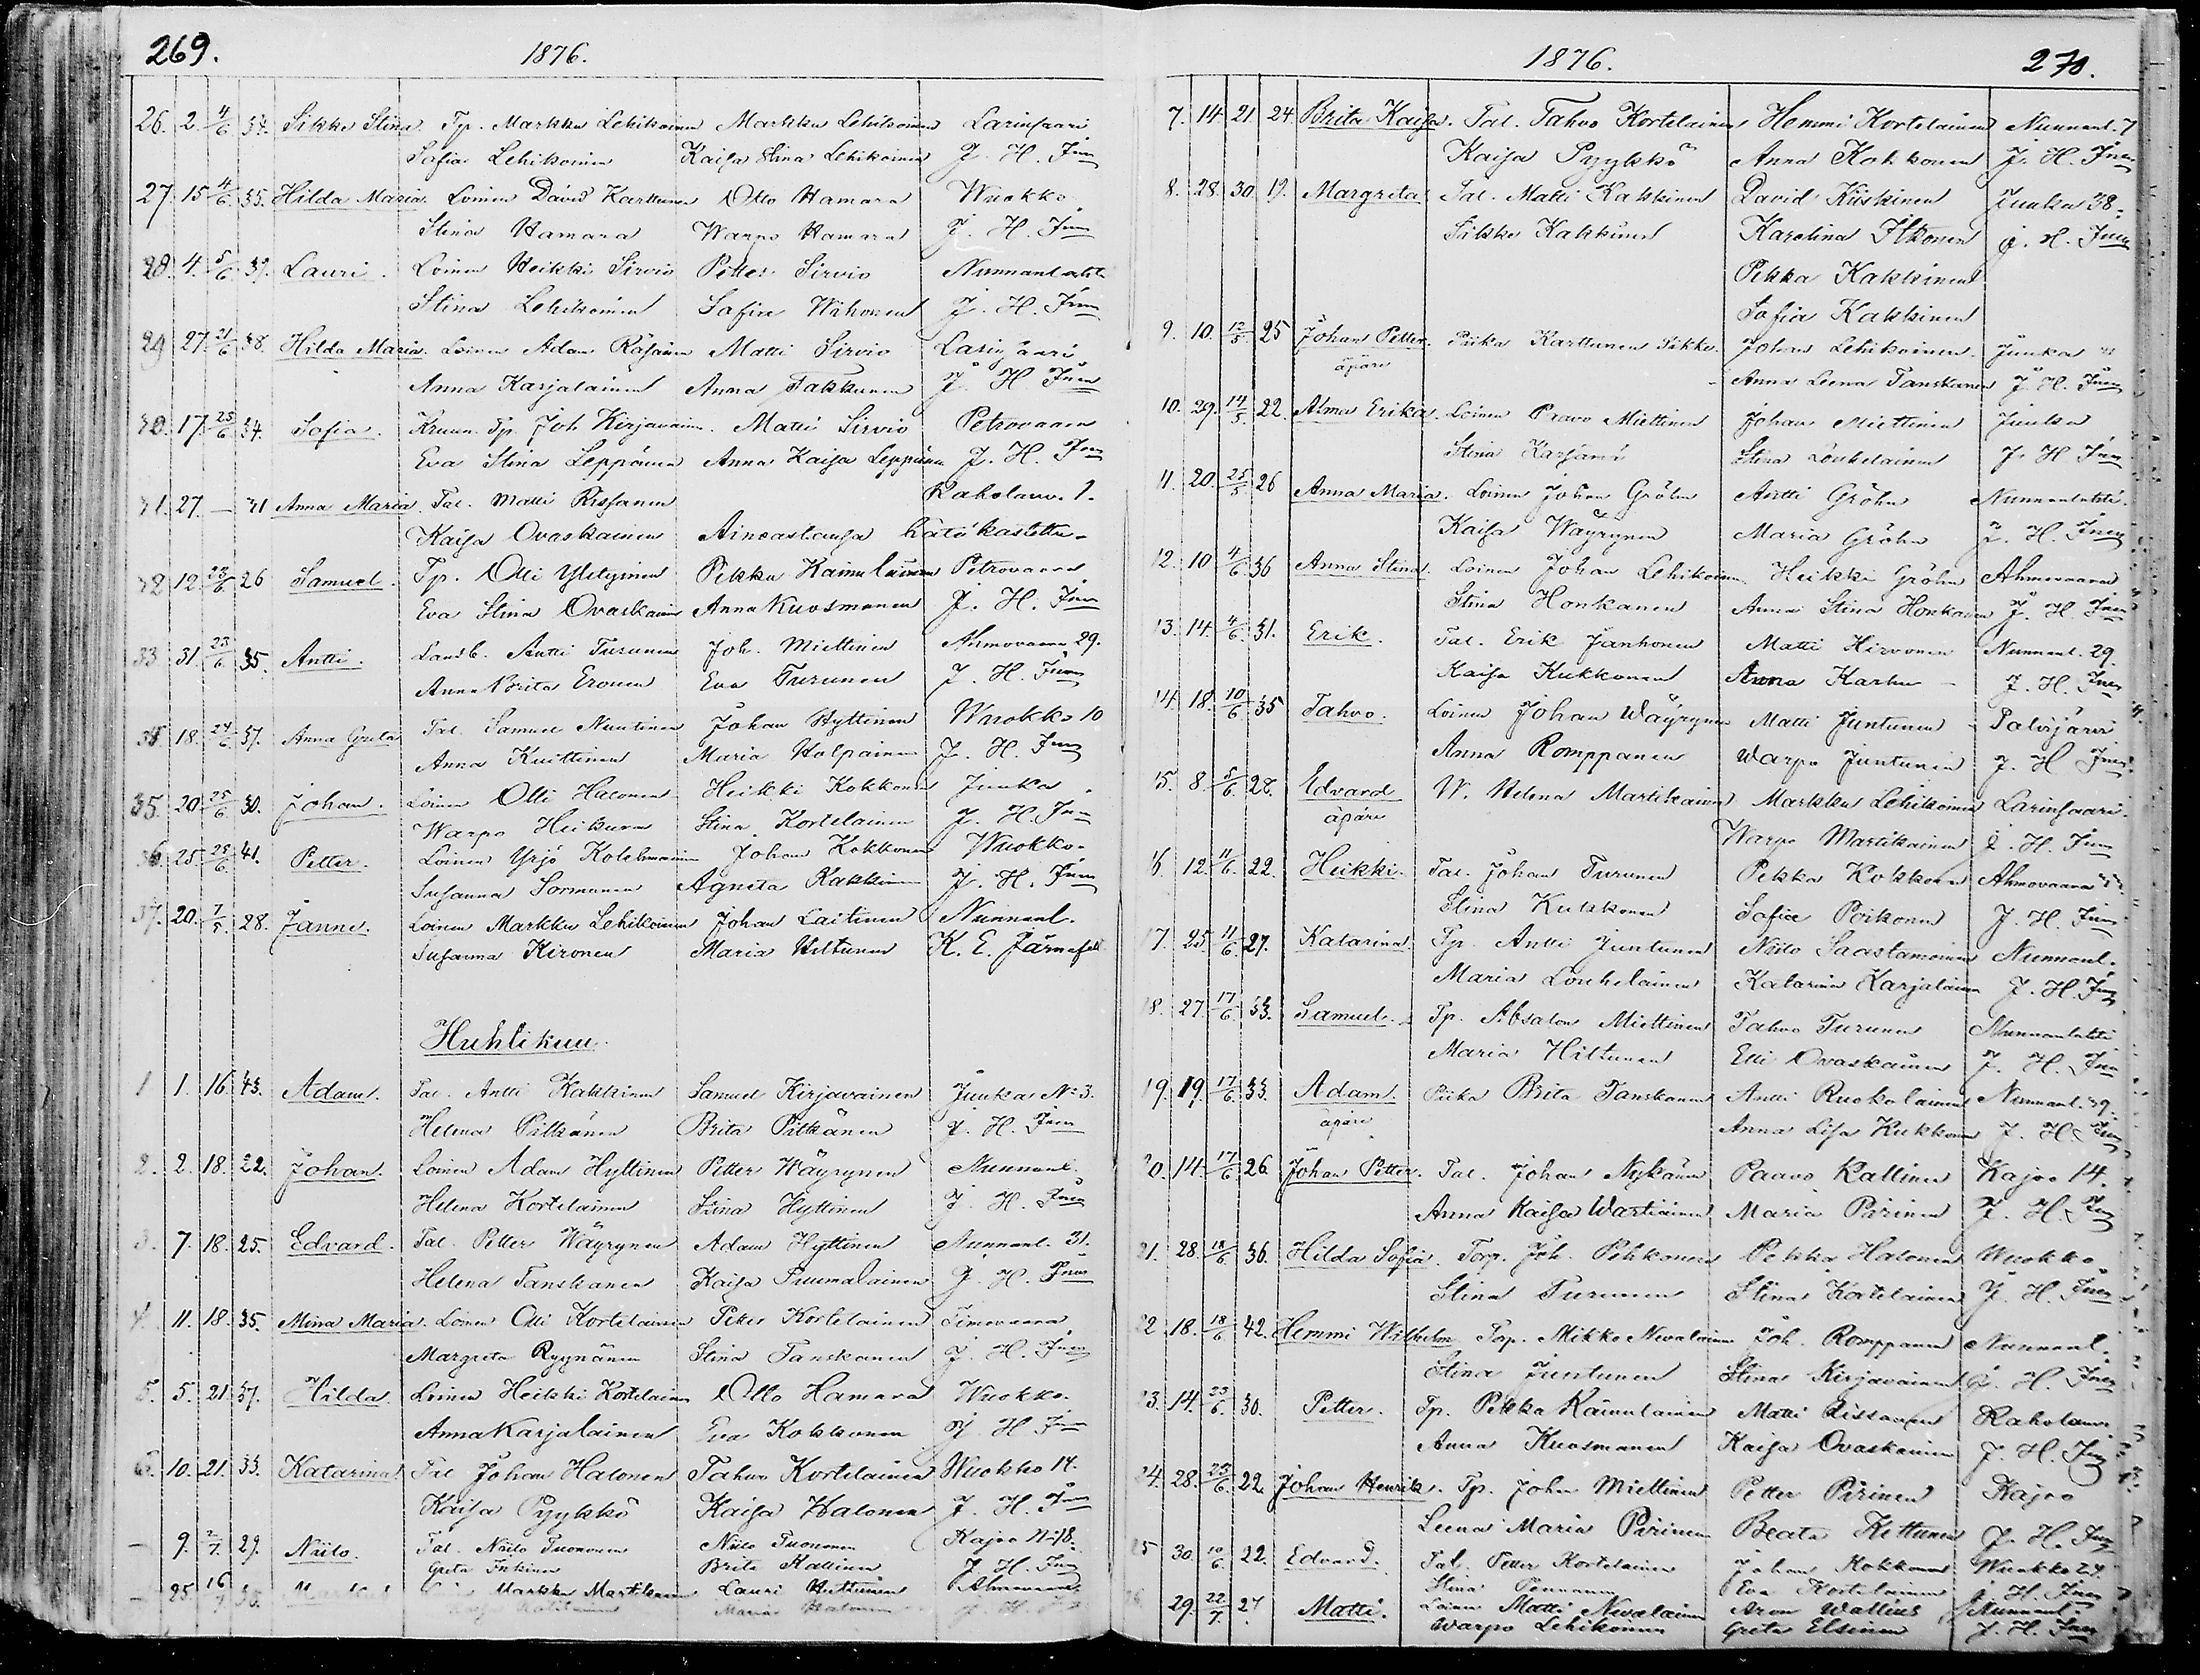 269.
1876.
26. 2. 4/6 34. Sikke Stina. Tp. Markku Lehikoinen Markku Lehikoinen Larinsaari
Sofia Lehikoinen Kaisa Stina Lehikoinen J. H.
27. 15 4/6 35. Hilda Maria. Loinen David Karttunen Otto Hamara Wuokko
Stina Hamara Warpo Hamara J. H.
28. 4. 5/6 39. Lauri. Loinen Heikki Sirvio Petter Sirvio Nunnanlahti
Stina Lehikoinen Sofia Wihonen J. H.
29 27. 21/6 38. Hilda Maria. Loinen Adam Räsänen Matti Sirvio Larinsaari
Anna Karjalainen Anna Takkunen J. H.
30. 17. 25/6 34. Sofia. Kruun. Tp. Joh Kirjavainen. Matti Sirvio Petrovaara
Eva Stina Leppänen Anna Kaisa Leppänen J. H.
31. 27. — 41 Anna Maria Tal. Matti Rissanen Raholanv. 1.
Kaisa Ovaskainen Ainoastansa hätäkastettu.
32 12. 23/6 26 Samuel. Tp. Olli Ylitynen Pekka Kainulainen Petrovaara
Eva Stina Ovaskainen Anna Kuosmanen J. H.
33 31. 23/6 35. Antti. Landb. Antti Turunen Joh. Miettinen Ahmovaara 29.
Anna Brita Eronen Eva Turunen J. H.
34. 18. 24/6 37. Anna Greta Tal. Samuel Nuutinen Johan Hyttinen Wuokko 10
Anna Kuittinen Maria Holpainen J. H.
35. 20. 25/6 30. Johan. Loinen Olli Halonen Heikki Kokkonen Juuka
Warpo Heikura Stina Kortelainen J. H.
36. 25 25/6 41. Petter. Loinen Yrjö Kolehmainen Johan Kokkonen Wuokko.
Susanna Sormunen Agneta Kakkinen J. H.
37. 20. 7/5 28. Janne. Loinen Markku Lehikoinen Johan Laitinen Nunnanl.
Susanna Kironen Maria Hiltunen K. E. Järnefelt
Huhtikuu.
1 1. 16. 43. Adam. Tal. Antti Kakkinen Samuel Kirjavainen Juuka No 3.
Helena Pitkänen Brita Pitkänen J. H.
2. 2. 18. 22. Johan. Loinen Adam Hyttinen Petter Wäyrynen Nunnanl.
Helena Kortelainen Stina Hyttinen J. H.
3. 7. 18. 25. Edvard. Tal. Petter Wäyrynen Adam Hyttinen Nunnanl. 31.
Helena Tanskanen Kaisa Puumalainen J. H.
4. 11. 18. 35. Mina Maria. Loinen Olli Kortelainen Peter Kortelainen Timovaara
Margreta Ryynänen Stina Tanskanen J. H.
5. 5. 21. 37. Hilda Loinen Heikki Kortelainen Otto Hamara Wuokko.
Anna Karjalainen Eva Kokkonen J. H.
6. 10. 21. 33. Katarina. Tal Johan Halonen Tahvo Kortelainen Wuokko 14.
Kaisa Pyykkö Kaisa Halonen J. H.
— 9. 2/7. 29. Niilo. Tal. Niilo Tuononen Niilo Tuononen Kajoo No 18.
Greta Inkinen Brita Kallinen J. H.
— 25 16/7 Markku Martikainen Lauri Hiltunen Ahmovaara
Maria Halonen J. H.
1876.
270.
7. 14. 21 24. Brita Kaisa. Tal. Tahvo Kortelainen Hemmi Kortelainen Nunnanl. 7
Kaisa Pyykkö Anna Kokkonen J. H.
8. 28. 30. 19. Margreta Tal. Matti Kakkinen David Kiiskinen Juuka 38.
Sikke Kakkinen Karolina Itkonen J. H.
Pekka Kakkinen
Sofia Kakkinen
9. 10. 12/5 25 Johan Petter. Piika Karttunen Sikke. Johan Lehikoinen. Juuka
äpäre Anna Leena Tanskanen J. H.
10. 29. 14/5. 22. Alma Erika. Loinen Paavo Miettinen Johan Miettinen Juuka
Stina Karjam Stina Louhelainen J. H.
11. 20. 25/5 26 Anna Maria. Loinen Johan Gröhn Antti Gröhn Nunnanlahti.
Kaisa Wäyrynen Maria Gröhn J. H.
12. 10 4/6 36 Anna Stina. Loinen Johan Lehikoinen Heikki Gröhn Ahmovaara
Stina Honkanen Anna Stina Honkanen J. H.
13. 14. 4/6. 31. Erik. Tal. Erik Janhonen Matti Hirvonen Nunnanl. 29.
Kaisa Kukkonen Anna Karhu J. H.
14. 18. 10/6 35 Tahvo. Loinen Johan Wäyrynen Matti Juntunen Palojärvi
Anna Romppanen Warpo Juntunen J. H.
15. 8. 5/6. 28. Edvard W. Helena Martikainen Markku Lehikoinen Larinsaari.
äpäre Warpo Martikainen J. H.
16. 12. 11/6. 22. Heikki. Tal. Johan Turunen Pekka Kokkonen Ahmovaara
Stina Kukkonen Sofia Poikonen J. H.
17. 25. 11/6 27. Katarina. Tp. Antti Juntunen Niilo Saastamoinen Nunnanl.
Maria Louhelainen Katarina Karjalainen J. H.
18. 27. 17/6 33. Samuel. Tp. Absalon Miettinen Tahvo Turunen Nunnanlahti
Maria Hiltunen Elli Ovaskainen J. H.
19. 19. 17/6. 33. Adam. Piika Brita Tanskanen Antti Ruokolainen Nunnanl. 39.
äpäre Anna Lisa Kukkonen J. H.
20. 14. 17/6. 26. Johan Petter. Tal. Johan Nykänen Paavo Kallinen Kajoo 14.
Anna Kaisa Wartiainen Maria Pirinen J. H.
21. 28. 18/6. 36. Hilda Sofia. Torp. Joh. Pehkonen Pekka Halonen Wuokko.
Stina Turunen Stina Kortelainen J. H.
22 18. 18/6 42. Hemmi Wilhelm Torp. Mikko Nevalainen Joh. Romppanen Nunnanl.
Stina Juntunen Stina Kirjavainen J. H.
23. 14. 25/6. 30. Petter. Tp. Pekka Kainulainen Matti Rissanen Raholanv.
Anna Kuosmanen Kaisa Ovaskainen J. H.
24. 28. 25/6. 22. Johan Henrik. Tp. John Miettinen Petter Pirinen Kajoo
Leena Maria Pirinen Beata Kettunen J. H.
25 30. 10/6 22. Edvard. Tal. Petter Kortelainen Johan Kokkonen Wuokko 29.
Stina Pennanen Eva Kortelainen J. H.
29. 22/7. 27 Matti. Loinen Matti Nevalainen Aron Wallius Nunnanl.
Warpo Lehikoinen Greta Elsinen J. H.